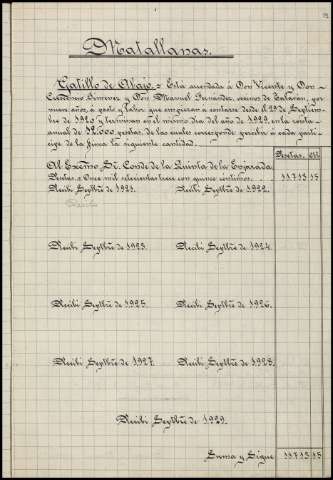 Matallanas.
Gatillo de Abajo.= Esta arrendada á Don Vicente y Don
Jimenez y Don Manuel Fernández, vecinos de
nueve años, á pasto y labor que empiezan á contarse desde el 29 de Septiem-
bre de 1920 y terminan en el mismo dia del año de 1929, en la renta
anual de pesetas, de las cuales corresponde percibir á cada partí-
cipe de la finca la siguiente cantidad.
Pesetas. Cts
Al Excmo. Sr. Conde de la Quinta de la Enjarada
Pesetas = Once mil setecientas trece con quince céntimos. 11.713 15
Recibí Sepbre de 1921. Recibí Sepbre de 1922.
Recibí Sepbre de 1923. Recibí Sepbre de 1924.
Recibí Sepbre de 1925. Recibí Sepbre de 1926.
Recibí Sepbre de 1927. Recibí Sepbre de 1928.
Recibí Sepbre de 1929.
Suma y Sigue 11.713 15